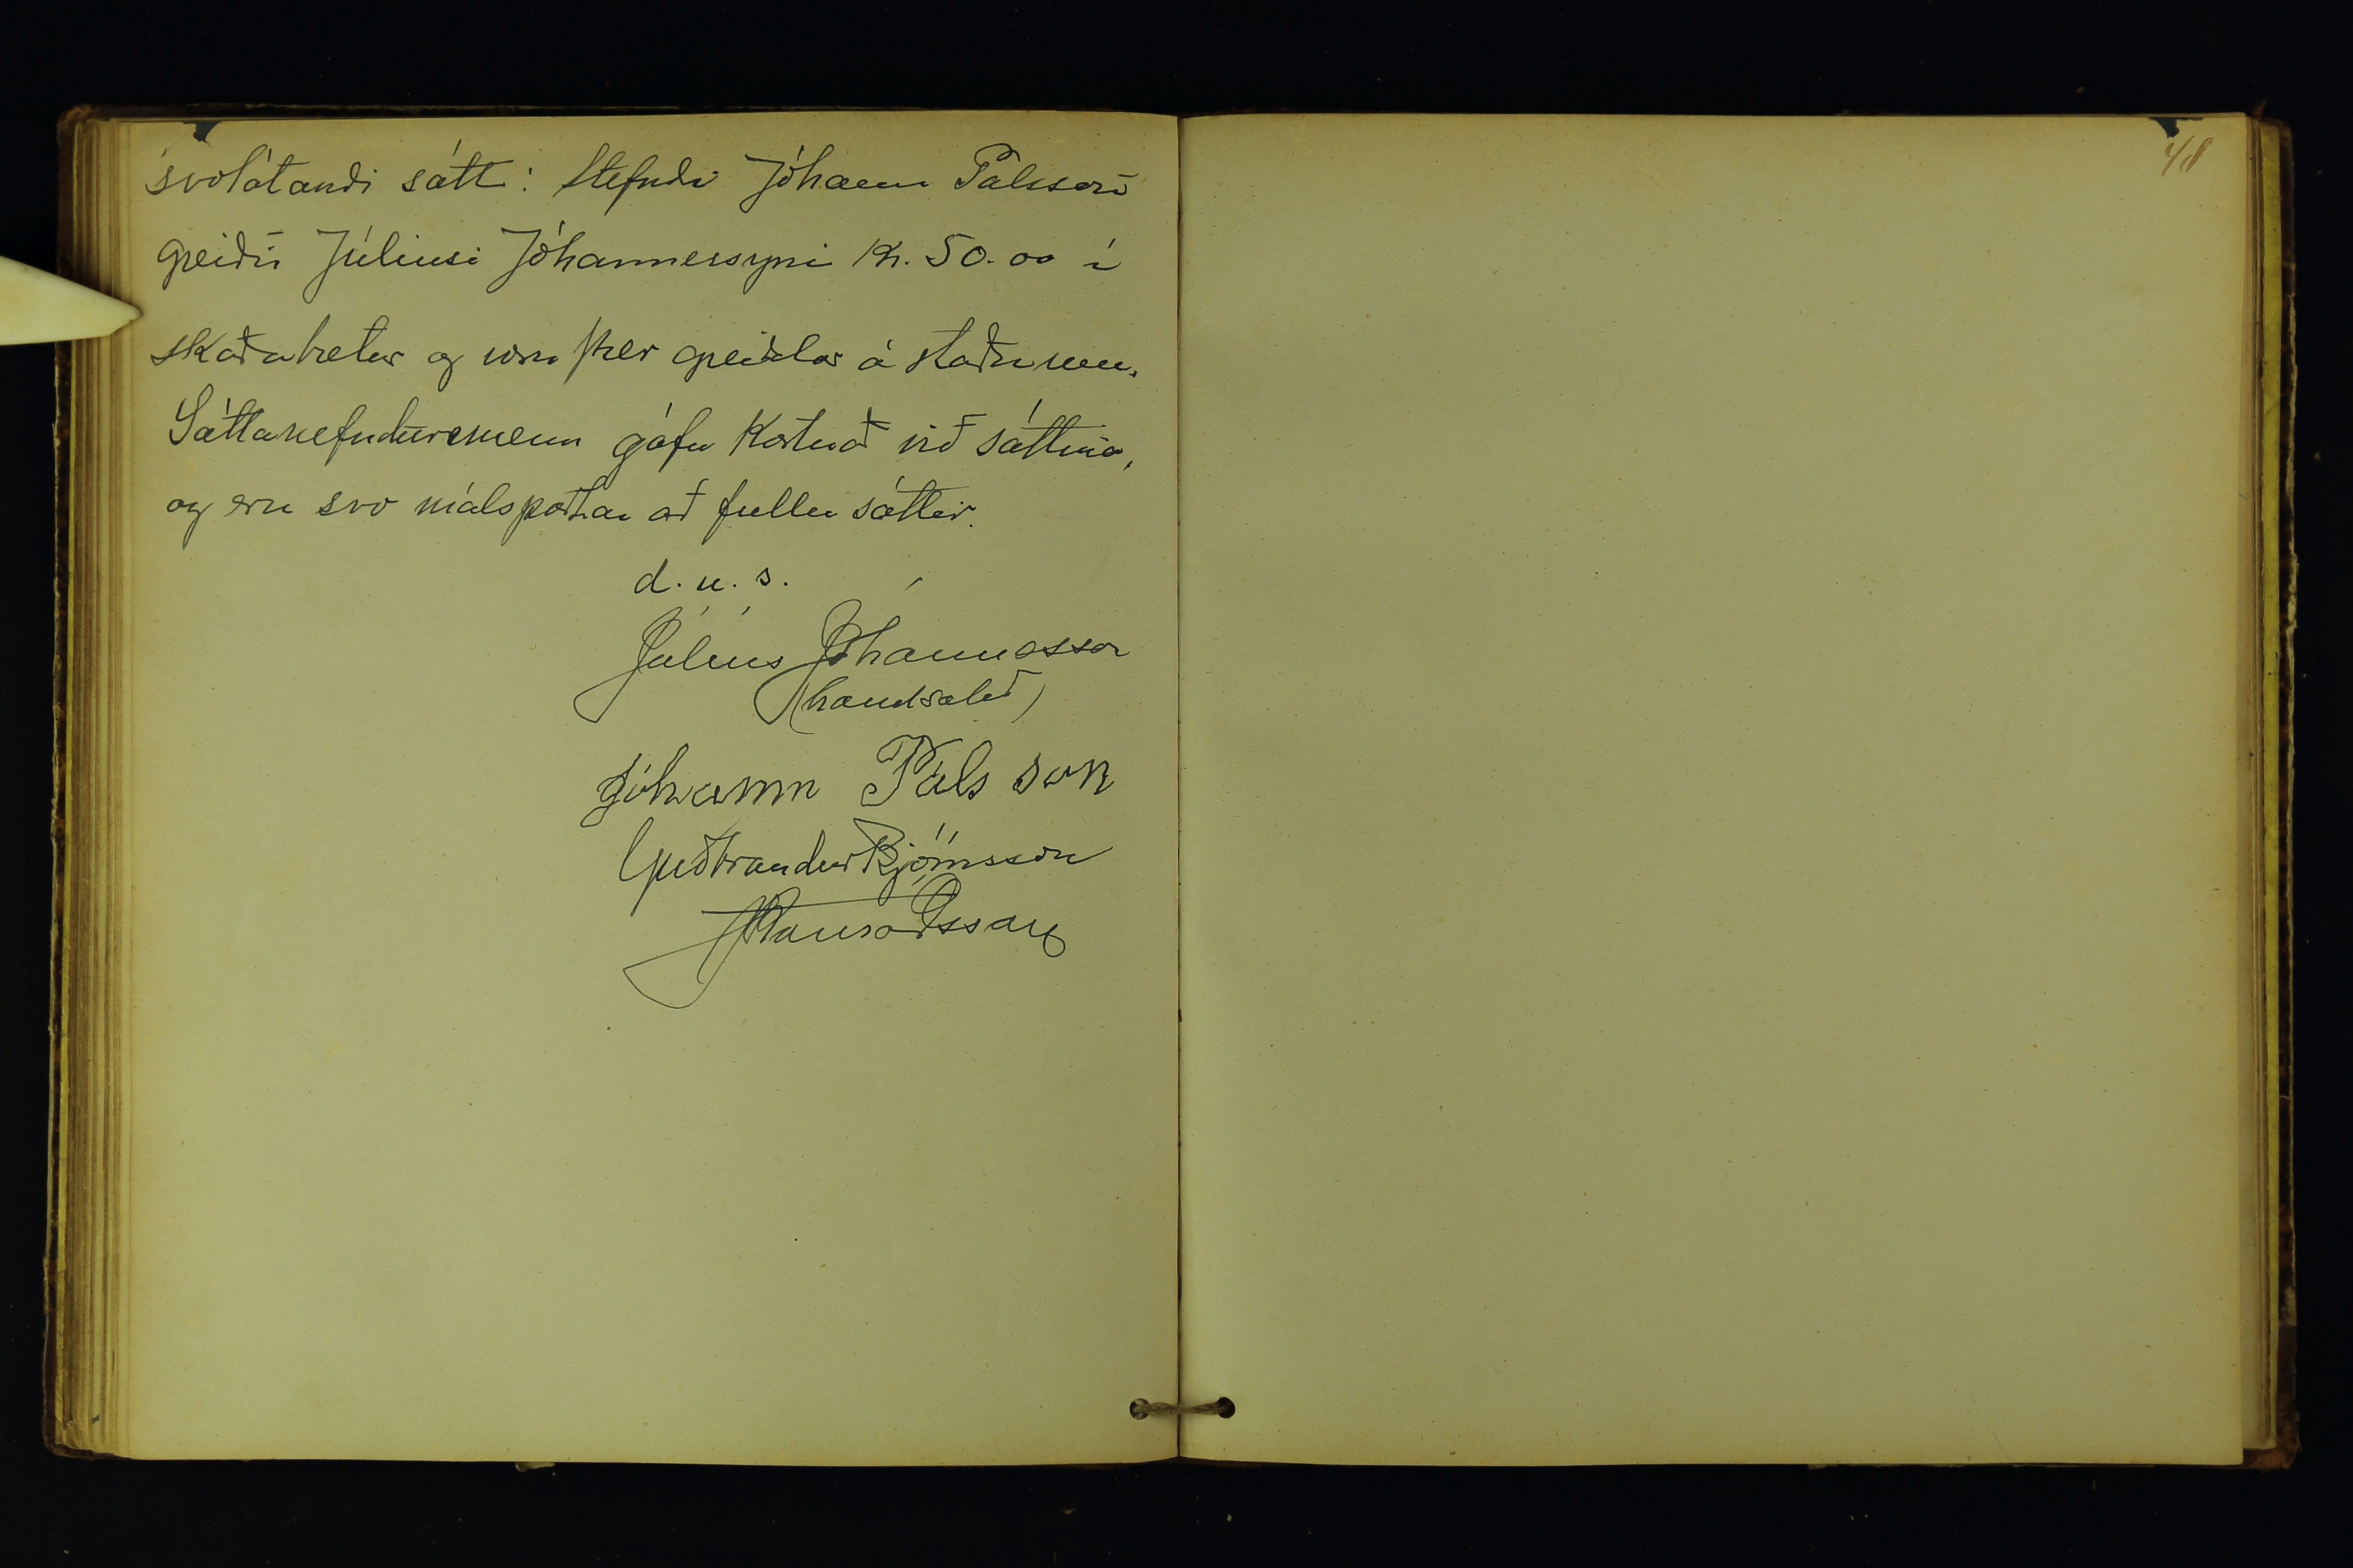 svolátandi sátt: Stefndi Jóhann Pálsson
greiðir Júlíusi Jóhannessyni kr. 50.00 í
skaðabætur og voru þær greiddar á staðnum.
Sáttanefndarmenn gáfu kostnað við sáttina,
og eru svo málspartar að fullu sáttir.
d. u. s.
Júlíus Jóhannesson
(handsalað)
Jóhann Páls son
Guðbrandur Björnsson
48